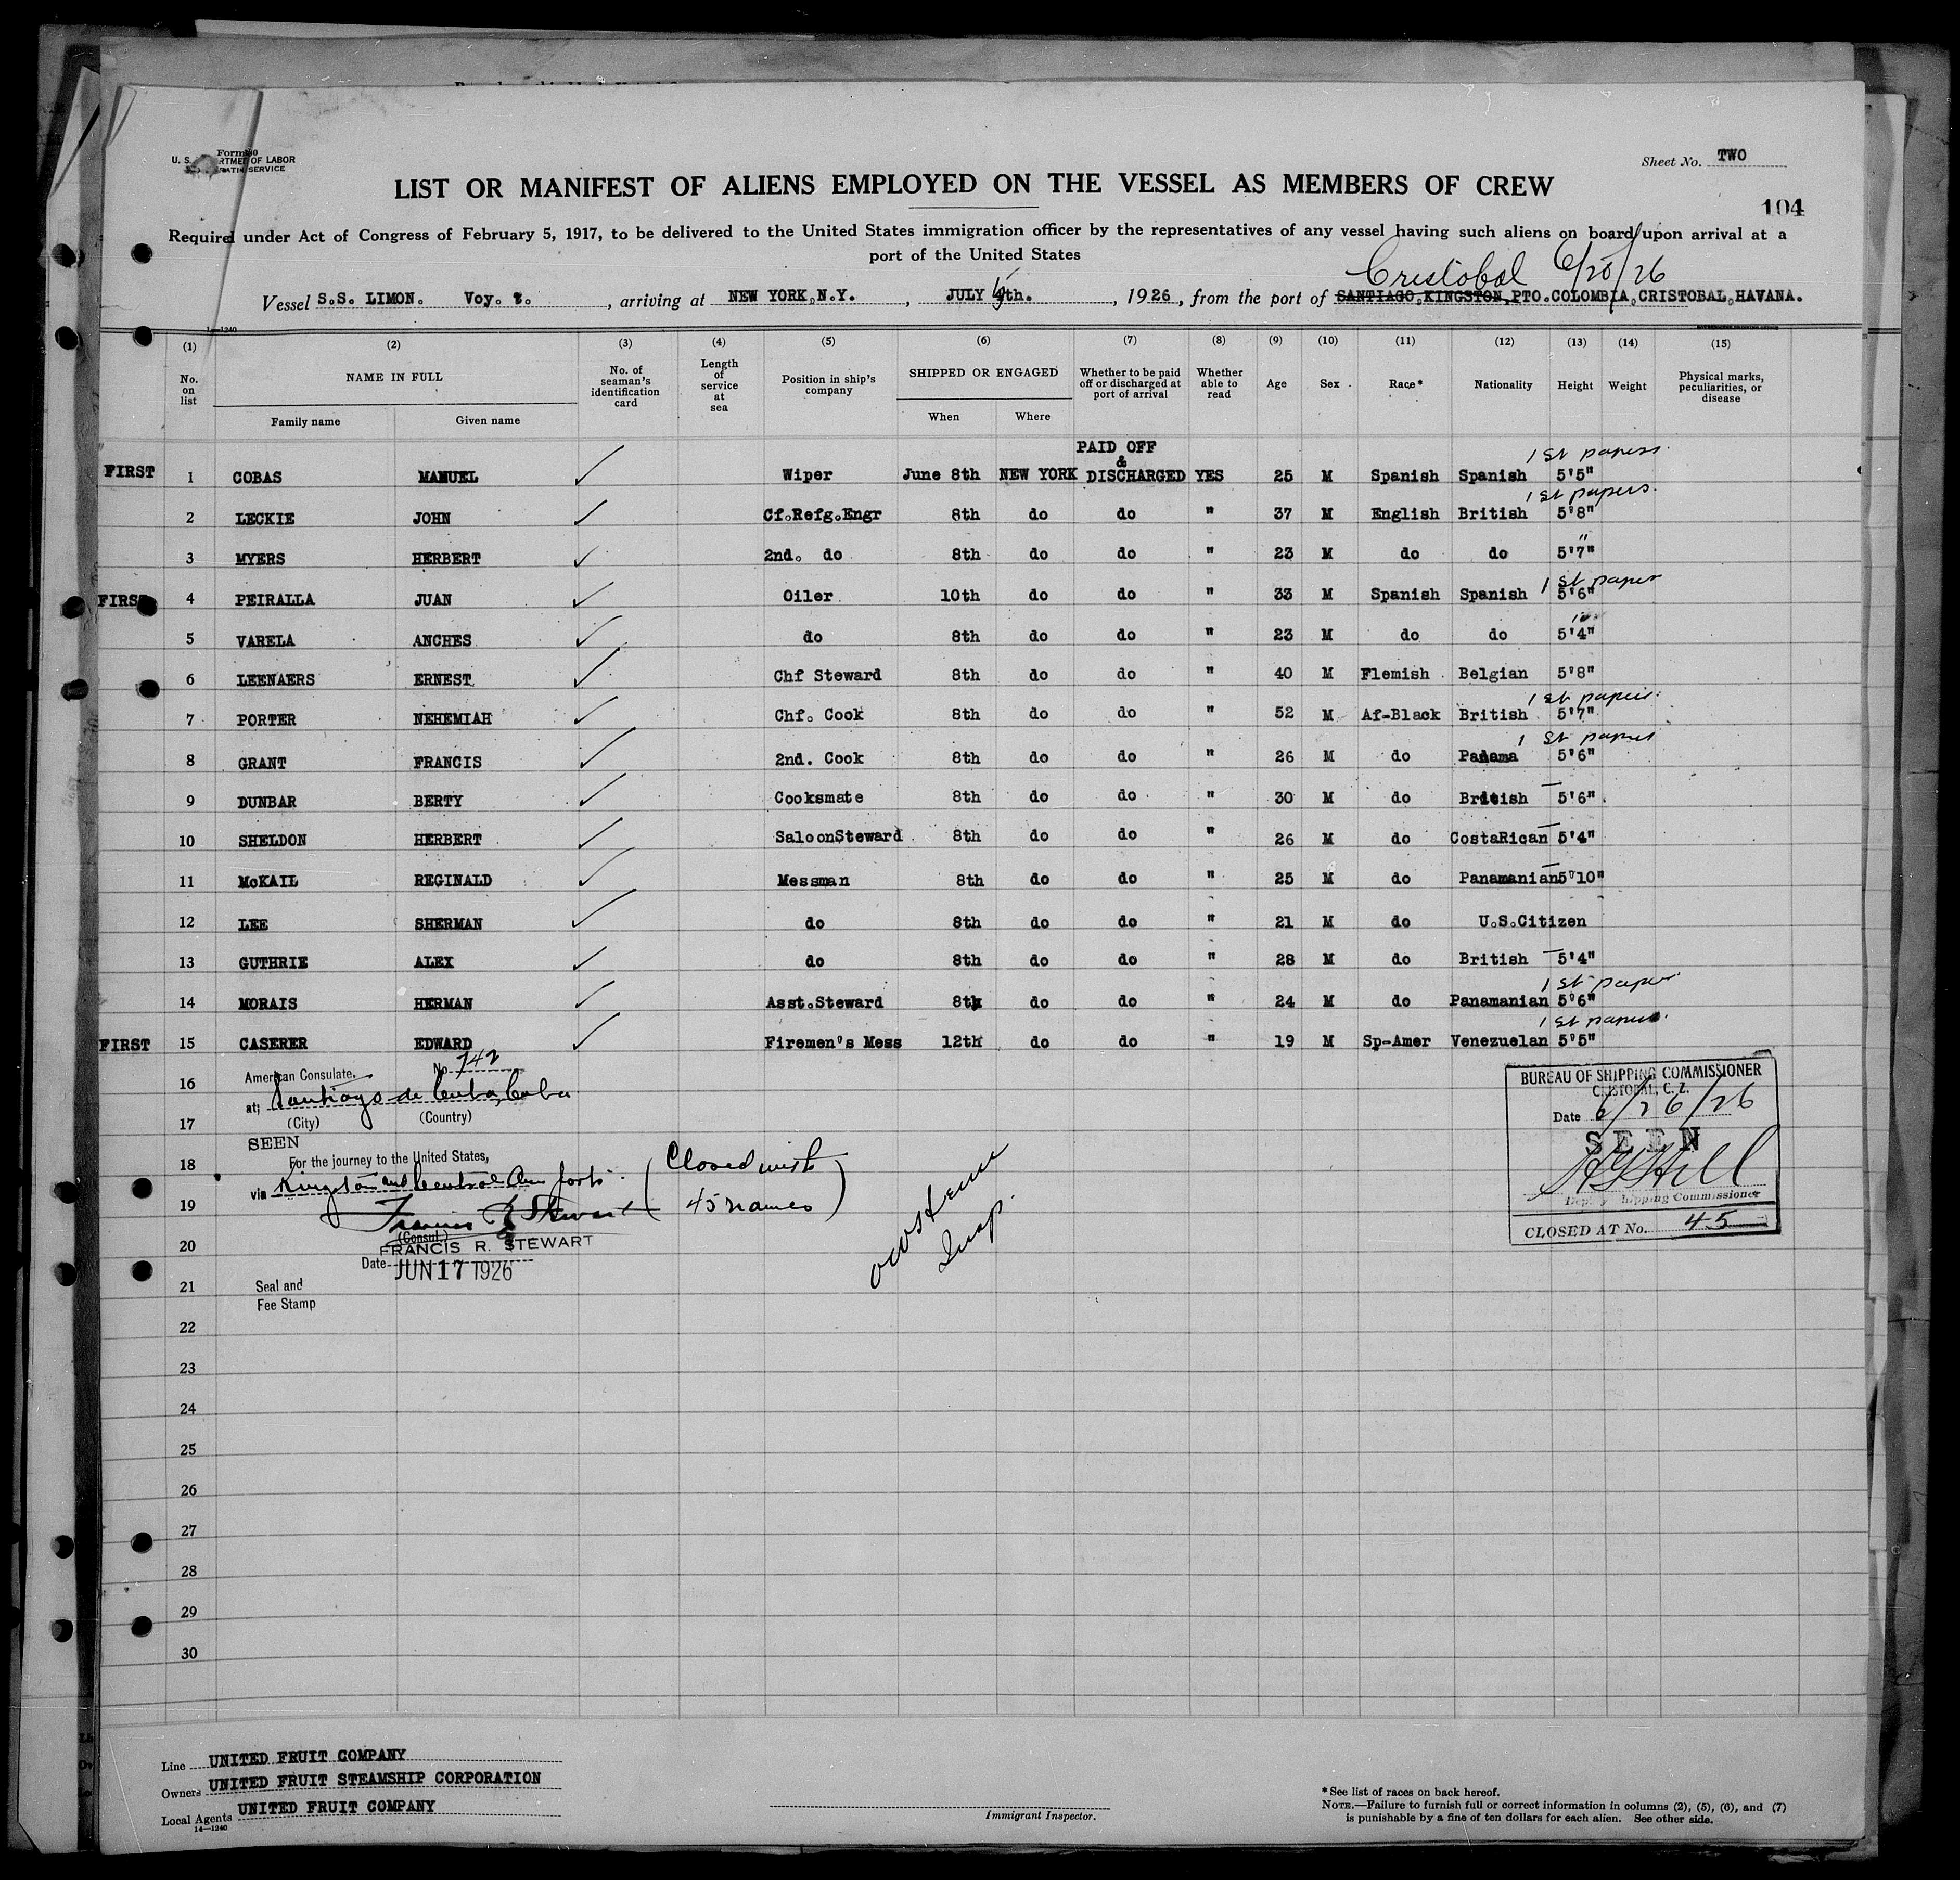 Sheet No. TWO
LIST OR MANIFEST OF ALIENS EMPLOYED ON THE VESSEL AS MEMBERS OF CREW
104
Required under Act of Congress of February 5, 1917, to be delivered to the United States immigration officer by the representatives of any vessel having such aliens on board upon arrival at a
port of the United States
Cristobal 6/26/26
Vessel S.S. LIMON. Voy. , arriving at NEW YORK, N.Y. , JULY th. , 1926, from the port of SANTIAGO, KINGSTON, PTO. COLOMBIA, CRISTOBAL, HAVANA.
14—1240
(1) (2) (3) (4) (5) (6) (7) (8) (9) (10) (11) (12) (13) (14) (15)
No. on list NAME IN FULL Family name Given name No. of seaman's identification card Length of service at sea Position in ship's company SHIPPED OR ENGAGED When Where Whether to be paid off or discharged at port of arrival Whether able to read Age Sex Race* Nationality Height Weight Physical marks, peculiarities, or disease
PAID OFF
& 1st papers.
FIRST 1 COBAS MANUEL Wiper June 8th NEW YORK DISCHARGED YES 25 M Spanish Spanish 5'5"
1st papers.
2 LECKIE JOHN Cf.Refg.Engr 8th do do " 37 M English British 5'8"
"
3 MYERS HERBERT 2nd. do 8th do do " 23 M do do 5'7"
1st paper
FIRST 4 PEIRALLA JUAN Oiler 10th do do " 33 M Spanish Spanish 5'6"
5 VARELA ANCHES do 8th do do " 23 M do do 5'4"
6 LEENAERS ERNEST Chf Steward 8th do do " 40 M Flemish Belgian 5'8"
1st papers.
7 PORTER NEHEMIAH Chf. Cook 8th do do " 52 M Af-Black British 5'7"
1st papers
8 GRANT FRANCIS 2nd. Cook 8th do do " 26 M do Panama 5'6"
9 DUNBAR BERTY Cooksmate 8th do do " 30 M do British 5'6"
10 SHELDON HERBERT SaloonSteward 8th do do " 26 M do CostaRican 5'4"
11 McKAIL REGINALD Messman 8th do do " 25 M do Panamanian 5'10"
12 LEE SHERMAN do 8th do do " 21 M do U.S.Citizen
13 GUTHRIE ALEX do 8th do do " 28 M do British 5'4"
1st paper
14 MORAIS HERMAN Asst.Steward 8th do do " 24 M do Panamanian 5'6"
1st papers.
FIRST 15 CASERER EDWARD Firemen's Mess 12th do do " 19 M Sp-Amer Venezuelan 5'5"
16 American Consulate, No. 742
at; Santiago de Cuba, Cuba
17 (City) (Country)
SEEN
18 For the journey to the United States,
via Kingston and Central Am ports. (Closed with
19 Francis R Stewart 45 names)
20 (Consul.)
FRANCIS R. STEWART
Date JUN 17 1926
21 Seal and
Fee Stamp
Insp.
BUREAU OF SHIPPING COMMISSIONER
CRISTOBAL, C. Z.
Date 6/26/26
SEEN
Hill
Deputy Shipping Commissioner
CLOSED AT No. 45
22
23
24
25
26
27
28
29
30
Line UNITED FRUIT COMPANY
Owners UNITED FRUIT STEAMSHIP CORPORATION
Local Agents UNITED FRUIT COMPANY
14—1240
Immigrant Inspector.
*See list of races on back hereof.
NOTE.—Failure to furnish full or correct information in columns (2), (5), (6), and (7)
is punishable by a fine of ten dollars for each alien. See other side.